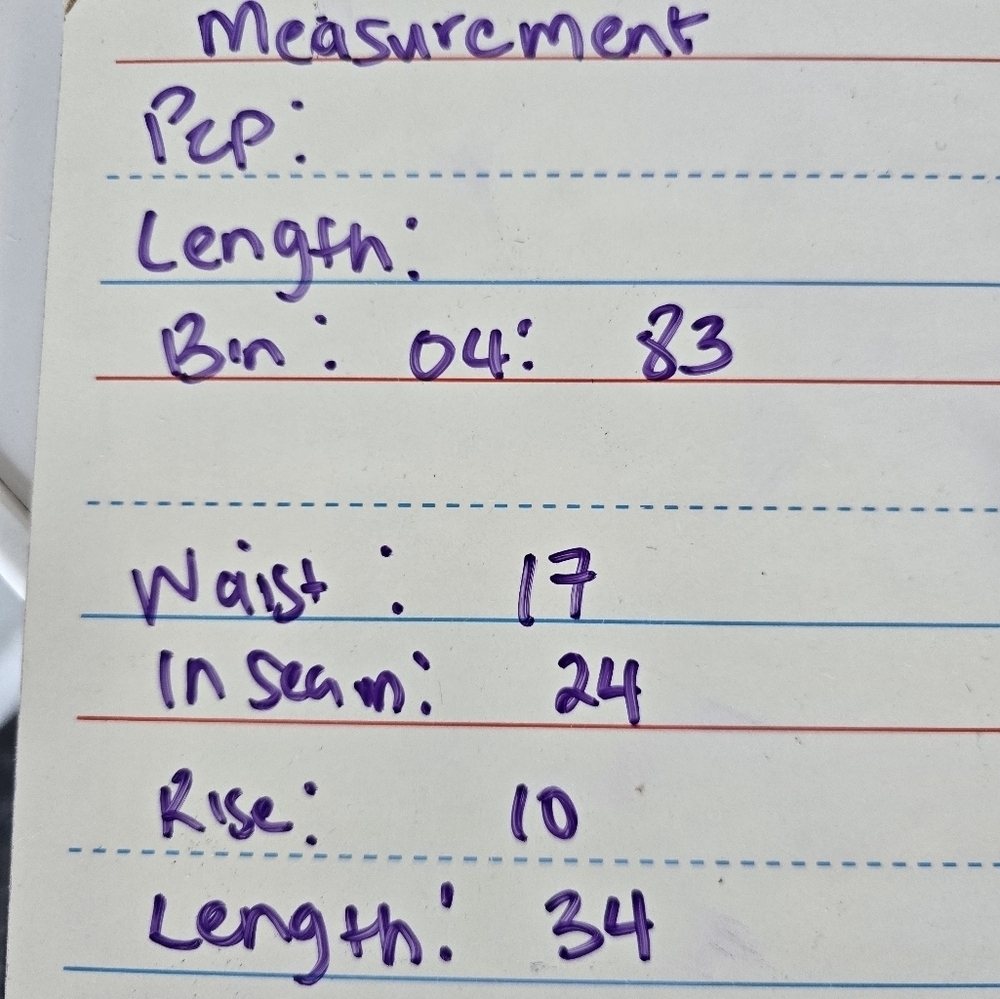 Measurement
P2P:
Length:
Bin: 04: 83
Waist: 17
In Seam: 24
Rise: 10
Length: 34